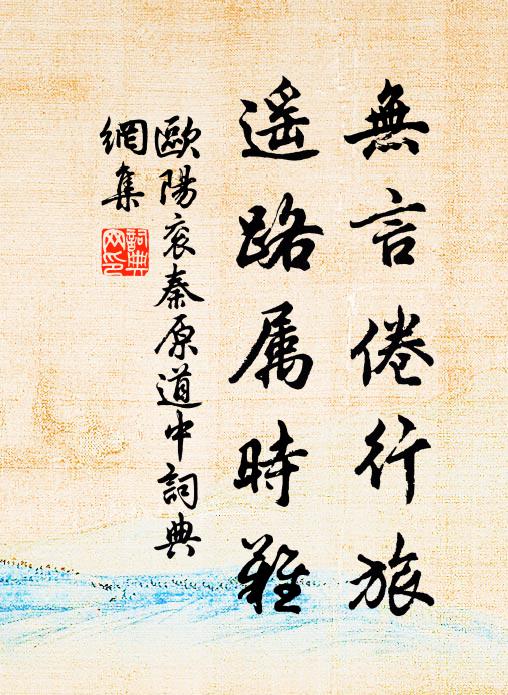 無言倦行旅
遥路属時難
歐陽衮秦原道中詞典
網集
詞典
网印